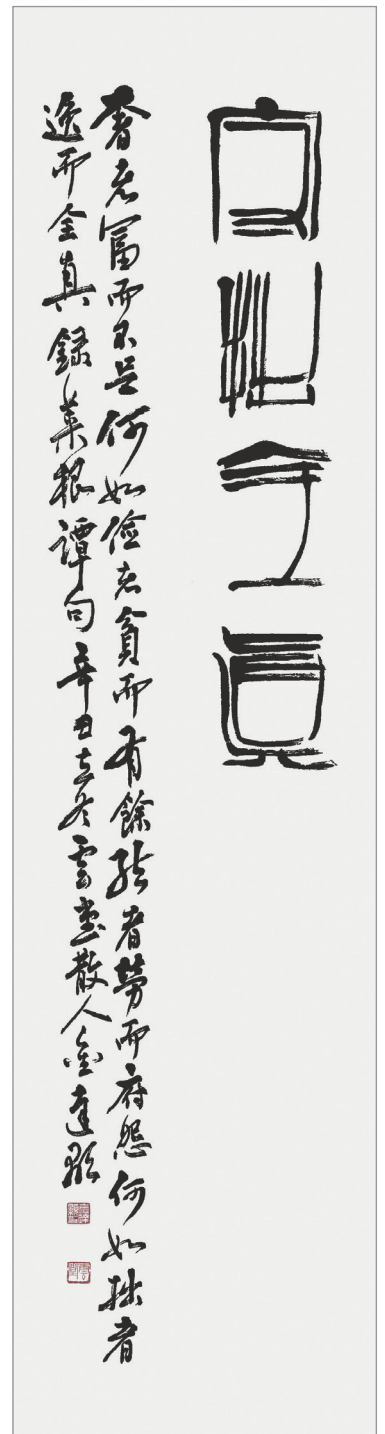 守拙全眞
奢者富而不足何如儉者貧而有餘能者勞而府怨何如拙者
逸而全真 錄菜根譚句 辛丑立冬 雲臺散人 金達